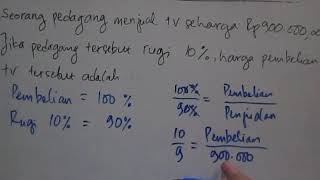 Seorang pedagang menjual tv seharga Rp900.000,00
Jika pedagang tersebut rugi 10%, harga pembelian
tv tersebut adalah
Pembelian = 100%
Rugi 10% = 90%
100% / 90% = Pembelian / Penjualan
10 / 9 = Pembelian / 900.000